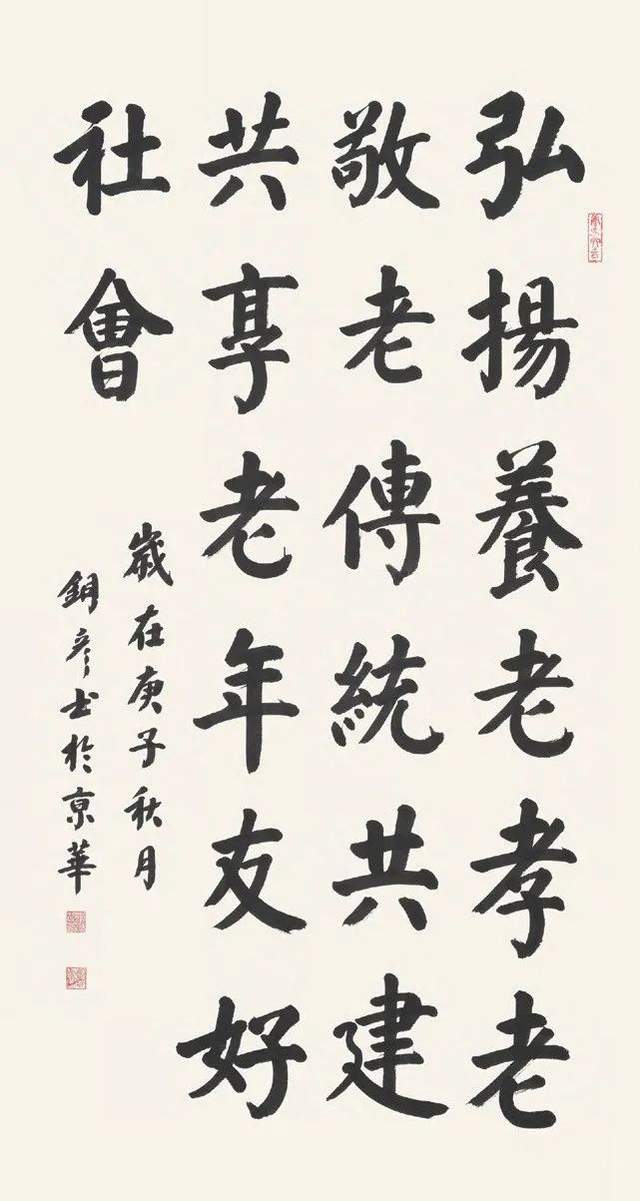 弘揚養老孝老
敬老傳統共建
共享老年友好
社會
歲在庚子秋月
銅彦书於京華